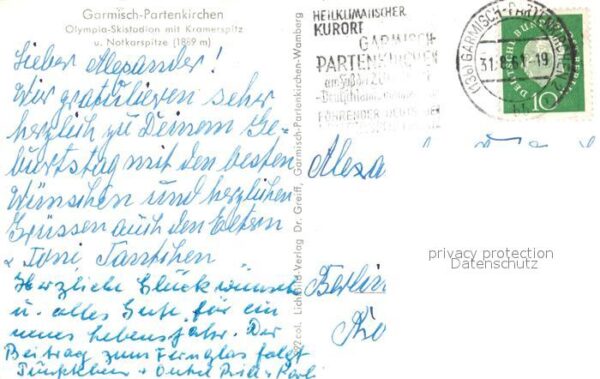 Garmisch-Partenkirchen
Olympia-Skistadion mit Kramerspitz
u. Notkarspitze (1889 m)
Lieber Alexander!
Wir gratulieren sehr
herzlich zu Deinem Ge-
burtstag mit den besten
Wünschen und herzlichen
Grüssen auch den Eltern
Herzliche Glückwünsche
u. alles Gute für ein
neues Lebensjahr. Der
Beitrag zum Fernglas folgt
Lichtbild-Verlag Dr. Greiff, Garmisch-Partenkirchen-Wamberg
HEILKLIMATISCHER
KURORT
GARMISCH-
PARTENKIRCHEN
FÜHRENDER DEUTSCHER
GARMISCH-PARTENKIRCHEN
-19
DEUTSCHE BUNDESPOST
BERLIN
10
Alexa
Berlin
privacy protection
Datenschutz